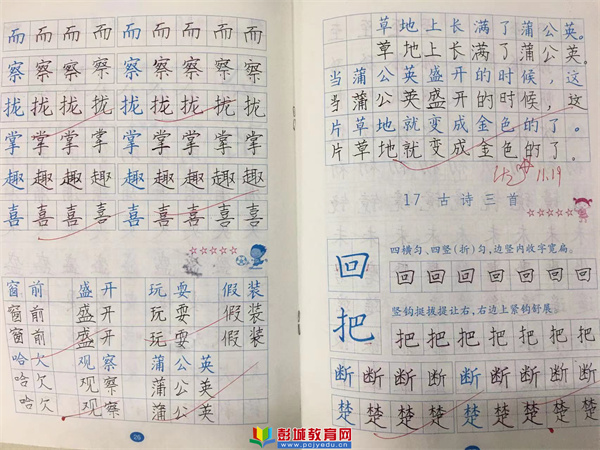 而 而 而 而 而 而 而 而
察 察 察 察 察 察 察 察
拢 拢 拢 拢 拢 拢 拢 拢
掌 掌 掌 掌 掌 掌 掌 掌
趣 趣 趣 趣 趣 趣 趣 趣
喜 喜 喜 喜 喜 喜 喜 喜
窗前 盛开 玩耍 假装
窗前 盛开 玩耍 假装
窗前 盛开 玩耍 假装
哈欠 观察 蒲公英
哈欠 观察 蒲公英
哈欠 观察 蒲公英
26
草地上长满了蒲公英。
草地上长满了蒲公英。
当蒲公英盛开的时候,这
当蒲公英盛开的时候,这
片草地就变成金色的了。
片草地就变成金色的了。
11.19
17 古诗三首
回 四横匀,四竖(折)匀,边竖内收字宽扁。
回 回 回 回 回 回 回
把 竖钩挺拔提让右,右边上紧钩舒展。
把 把 把 把 把 把 把
断 断 断 断 断 断 断 断
楚 楚 楚 楚 楚 楚 楚 楚
彭城教育网
www.pcjyedu.cn